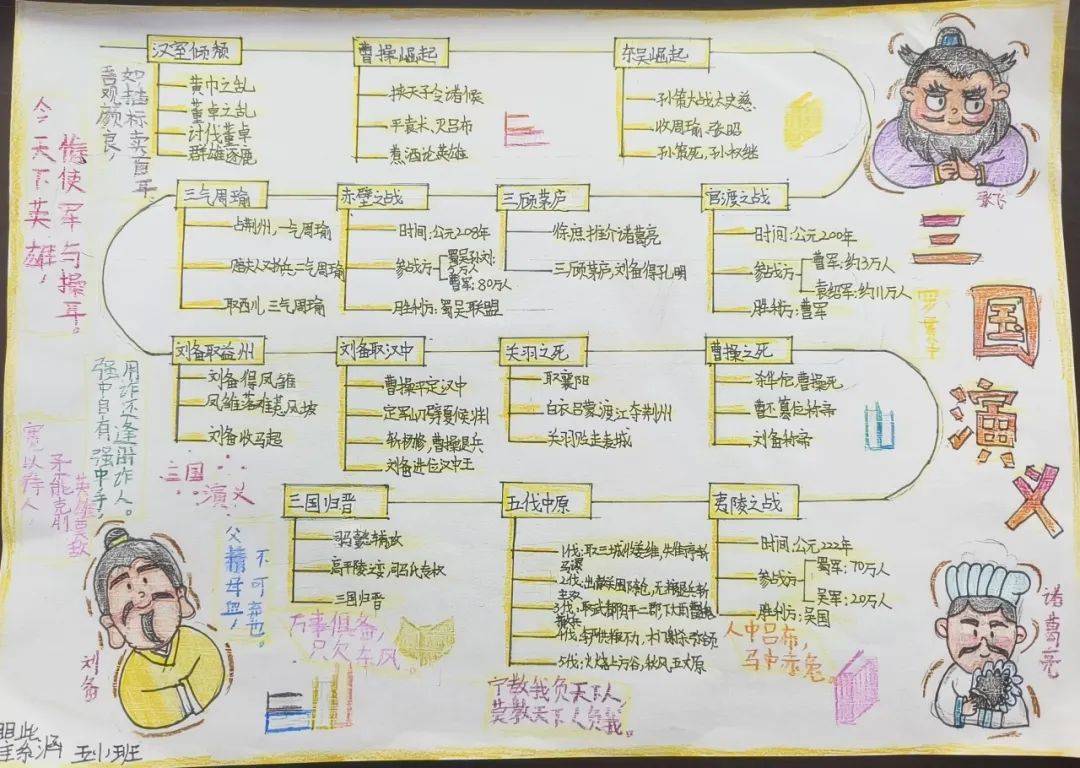 汉室倾颓
黄巾之乱
董卓之乱
讨伐董卓
群雄逐鹿
曹操崛起
挟天子令诸候
平袁术、灭吕布
煮酒论英雄
东吴崛起
孙策大战太史慈
收周瑜、张昭
孙策死，孙权继
官渡之战
时间：公元200年
参战方
曹军：约3万人
袁绍军：约11万人
胜利方：曹军
三顾茅庐
徐庶推介诸葛亮
三顾茅庐，刘备得孔明
赤壁之战
时间：公元208年
参战方
蜀吴孙刘：
5万人
曹军：80万人
胜利方：蜀吴联盟
三气周瑜
占荆州，一气周瑜
赔夫人又折兵，二气周瑜
取西川，三气周瑜
刘备取益州
刘备得凤雏
凤雏落难落凤坡
刘备收马超
刘备取汉中
曹操平定汉中
定军山劈夏侯渊
软杨修，曹操退兵
刘备进位汉中王
关羽之死
取襄阳
白衣吕蒙渡江夺荆州
关羽败走麦城
曹操之死
杀华佗，曹操死
曹丕篡位称帝
刘备称帝
夷陵之战
时间：公元222年
参战方
蜀军：70万人
吴军：20万人
胜利方：吴国
五伐中原
1伐：取三城收姜维，失街亭斩
马谡
三国归晋
高平陵之变，司马氏专权
三国归晋
吾观颜良，
如插标卖首耳
今天下英雄，
惟使军与操耳。
用诈还逢用诈人。
强中自有强中手，
宽以待人，
三国
演义
父精母血，
不可弃也。
万事俱备，
只欠东风
宁教我负天下人，
莫教天下人负我。
人中吕布，
马中赤兔
张飞
三国演义
刘备
诸葛亮
五小班